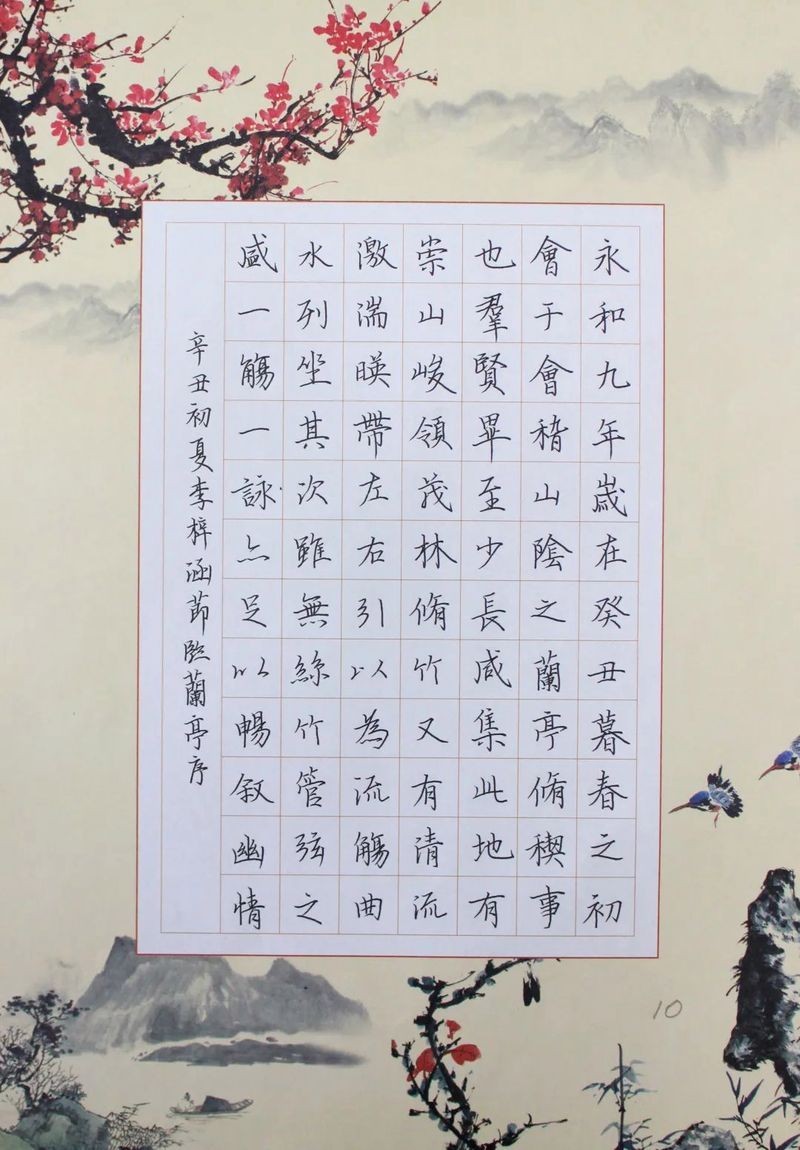 永和九年歲在癸丑暮春之初
會于會稽山陰之蘭亭脩稧事
也羣賢畢至少長咸集此地有
崇山峻領茂林脩竹又有清流
激湍暎帶左右引以為流觴曲
水列坐其次雖無絲竹管弦之
盛一觴一詠亦足以暢叙幽情
辛丑初夏李梓涵節臨蘭亭序
10